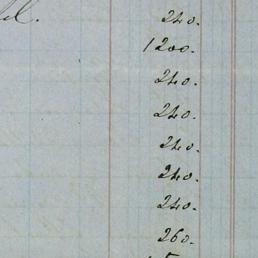 240.
1200.
240.
240.
240.
240.
240.
260.